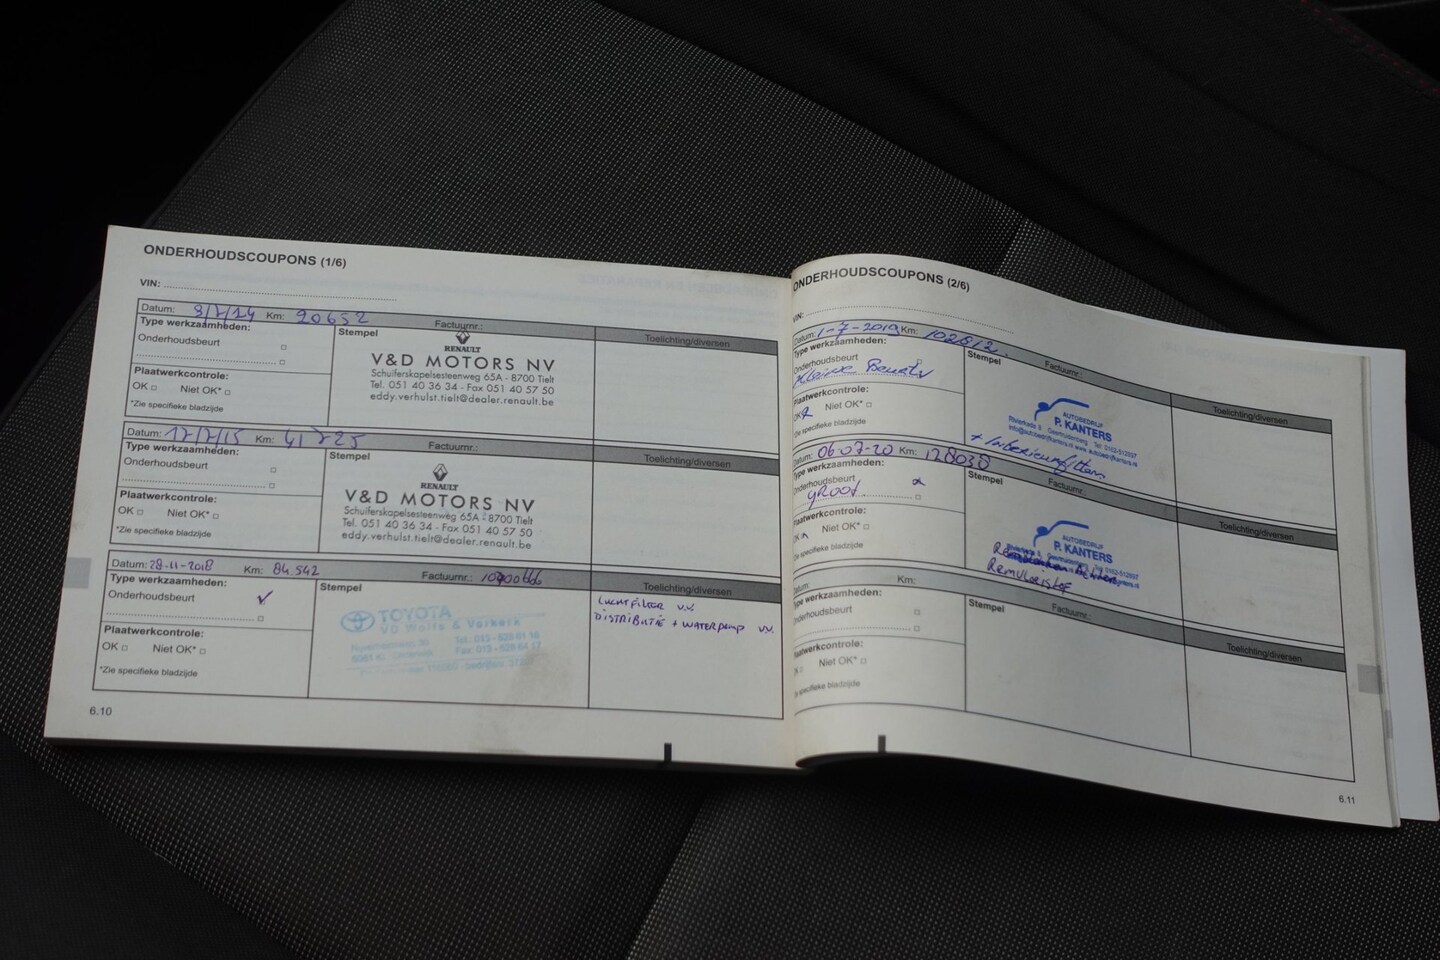 ONDERHOUDSCOUPONS (1/6)
VIN:
Datum: 8/7/14 Km: 20652 Factuurnr.:
Type werkzaamheden: Stempel Toelichting/diversen
Onderhoudsbeurt
Plaatwerkcontrole:
OK Niet OK*
*Zie specifieke bladzijde
RENAULT
V&D MOTORS NV
Schuiferskapelsesteenweg 65A - 8700 Tielt
Tel. 051 40 36 34 - Fax 051 40 57 50
eddy.verhulst.tielt@dealer.renault.be
Datum: 17/7/15 Km: 41725 Factuurnr.:
Type werkzaamheden: Stempel Toelichting/diversen
Onderhoudsbeurt
Plaatwerkcontrole:
OK Niet OK*
*Zie specifieke bladzijde
RENAULT
V&D MOTORS NV
Schuiferskapelsesteenweg 65A - 8700 Tielt
Tel. 051 40 36 34 - Fax 051 40 57 50
eddy.verhulst.tielt@dealer.renault.be
Datum: 28-11-2018 Km: 84.542 Factuurnr.:
Type werkzaamheden: Stempel Toelichting/diversen
Onderhoudsbeurt
Plaatwerkcontrole:
OK Niet OK*
*Zie specifieke bladzijde
TOYOTA
LUCHTFILTER V.V.
DISTRIBUTIE + WATERPOMP V.V.
6.10
ONDERHOUDSCOUPONS (2/6)
VIN:
Datum: 1-7-2019 Km: 102812 Factuurnr.:
Type werkzaamheden: Stempel Toelichting/diversen
Onderhoudsbeurt
Kleine Beurt
Plaatwerkcontrole:
OK Niet OK*
Zie specifieke bladzijde
AUTOBEDRIJF
P. KANTERS
+ Interieurfilter
Datum: 06-07-20 Km: 128038 Factuurnr.:
Type werkzaamheden: Stempel Toelichting/diversen
Onderhoudsbeurt
groot
Plaatwerkcontrole:
OK Niet OK*
Zie specifieke bladzijde
AUTOBEDRIJF
P. KANTERS
Remvloeistof
Datum: Km: Factuurnr.:
Type werkzaamheden: Stempel Toelichting/diversen
Onderhoudsbeurt
Plaatwerkcontrole:
OK Niet OK*
Zie specifieke bladzijde
6.11